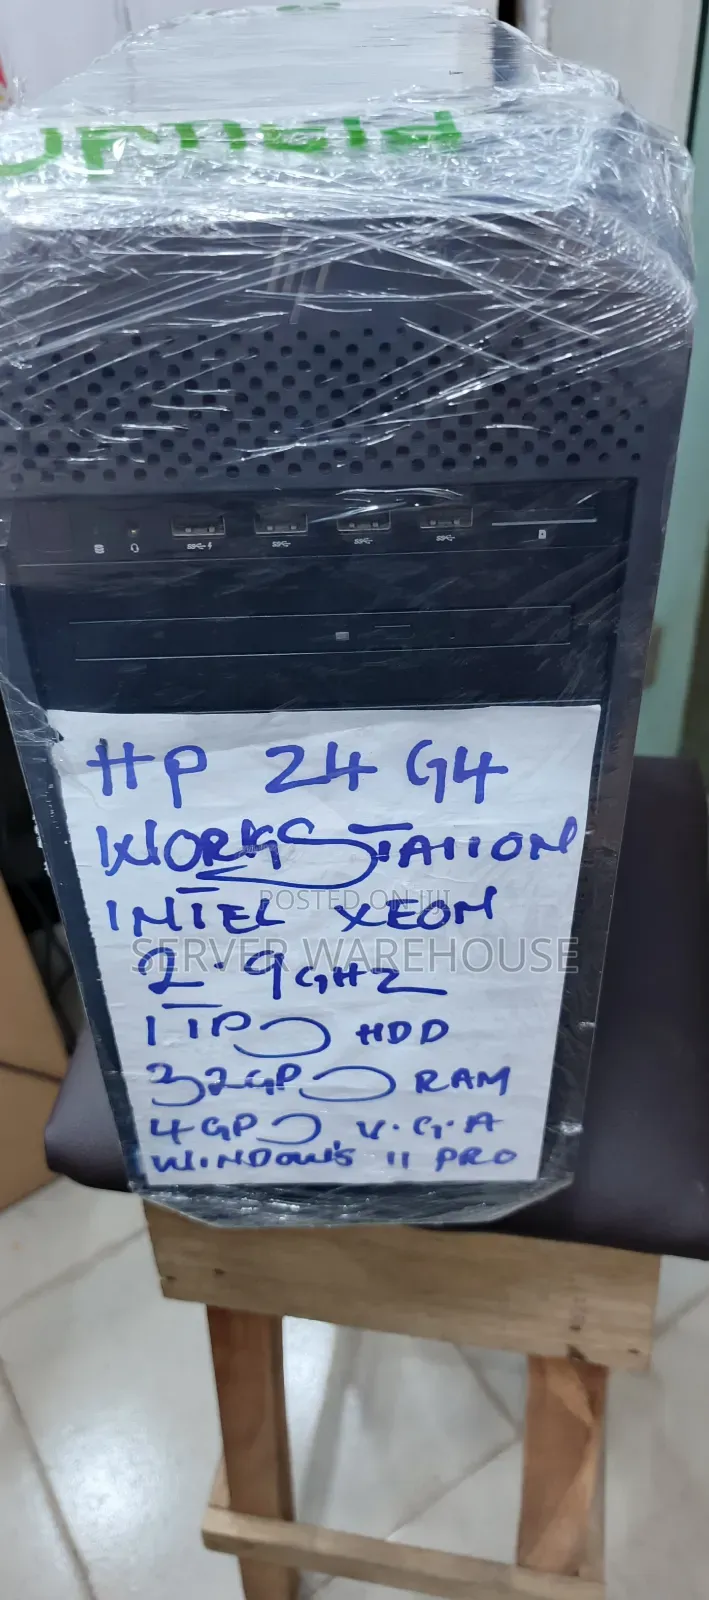 hp
HP Z4 G4
WORKSTATION
INTEL XEON
POSTED ON JIJI
SERVER WAREHOUSE
2.9GHZ
1TB HDD
32GB RAM
4GB V.G.A
WINDOWS 11 PRO